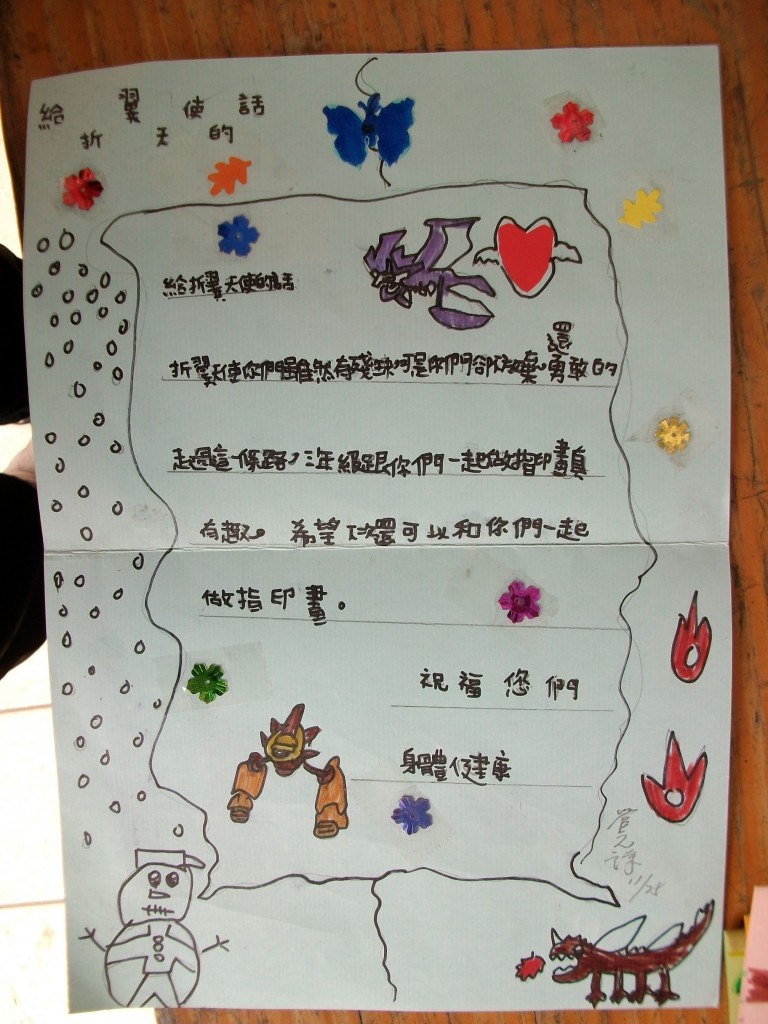 給折翼天使的話
給折翼天使的話
折翼天使你們雖然有殘缺,可是你們卻放棄,還勇敢的
走過這一條路,三年級跟你們一起做指印畫真
有趣。希望下次還可以和你們一起
做指印畫。
祝福您們
身體健康
11/25